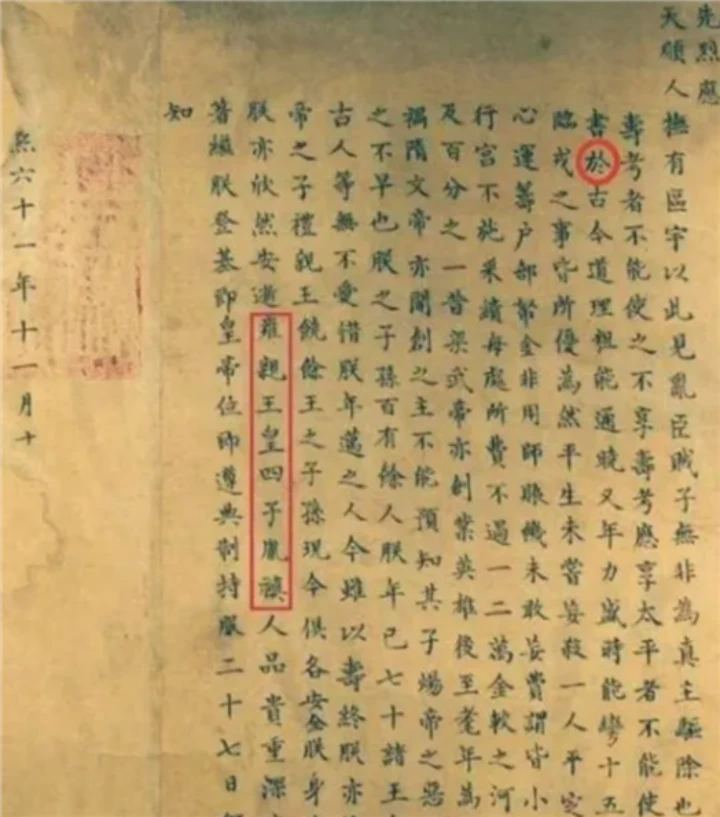 先烈應
天順人撫有區宇以此見亂臣賊子無非為真主驅除也
壽考者不能使之不享壽考應享太平者不能使
書於古今道理粗能通曉又年力盛時能彎十五
臨戎之事皆所優為然平生未嘗妄殺一人平定
心運籌戶部帑金非用師賑饑未敢妄費謂皆小
行宮不施采繢每處所費不過一二萬金較之河
及百分之一昔梁武帝亦創業英雄後至耄年為
禍隋文帝亦開創之主不能預知其子煬帝之惡
之不早也朕之子孫百有餘人朕年已七十諸王
古人等無不愛惜朕年邁之人今雖以壽終朕亦
帝之子禮親王饒餘王之子孫現今俱各安全朕身
朕亦欣然安逝雍親王皇四子胤禛人品貴重深
著繼朕登基即皇帝位即遵典制持服二十七日
知
熙六十一年十一月十